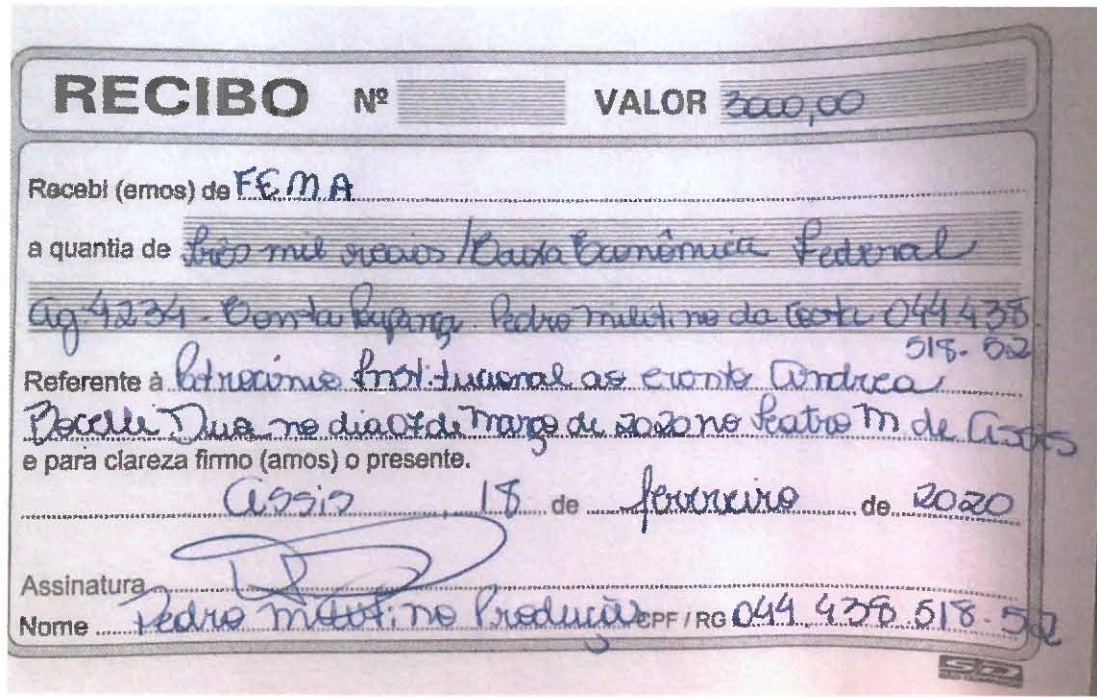 RECIBO Nº VALOR 3000,00
Recebi (emos) de FEMA
a quantia de três mil reais / Caixa Econômica Federal
Ag-4234 - Conta Poupança. Pedro Militino da Costa 044.438.
518-52
Referente à Patrocínio Institucional ao evento Andrea
Bocelli Duo no dia 07 de março de 2020 no Teatro M de Assis
e para clareza firmo (amos) o presente.
Assis, 18 de fevereiro de 2020
Assinatura
Nome Pedro Militino Produção CPF / RG 044.438.518-52
SD